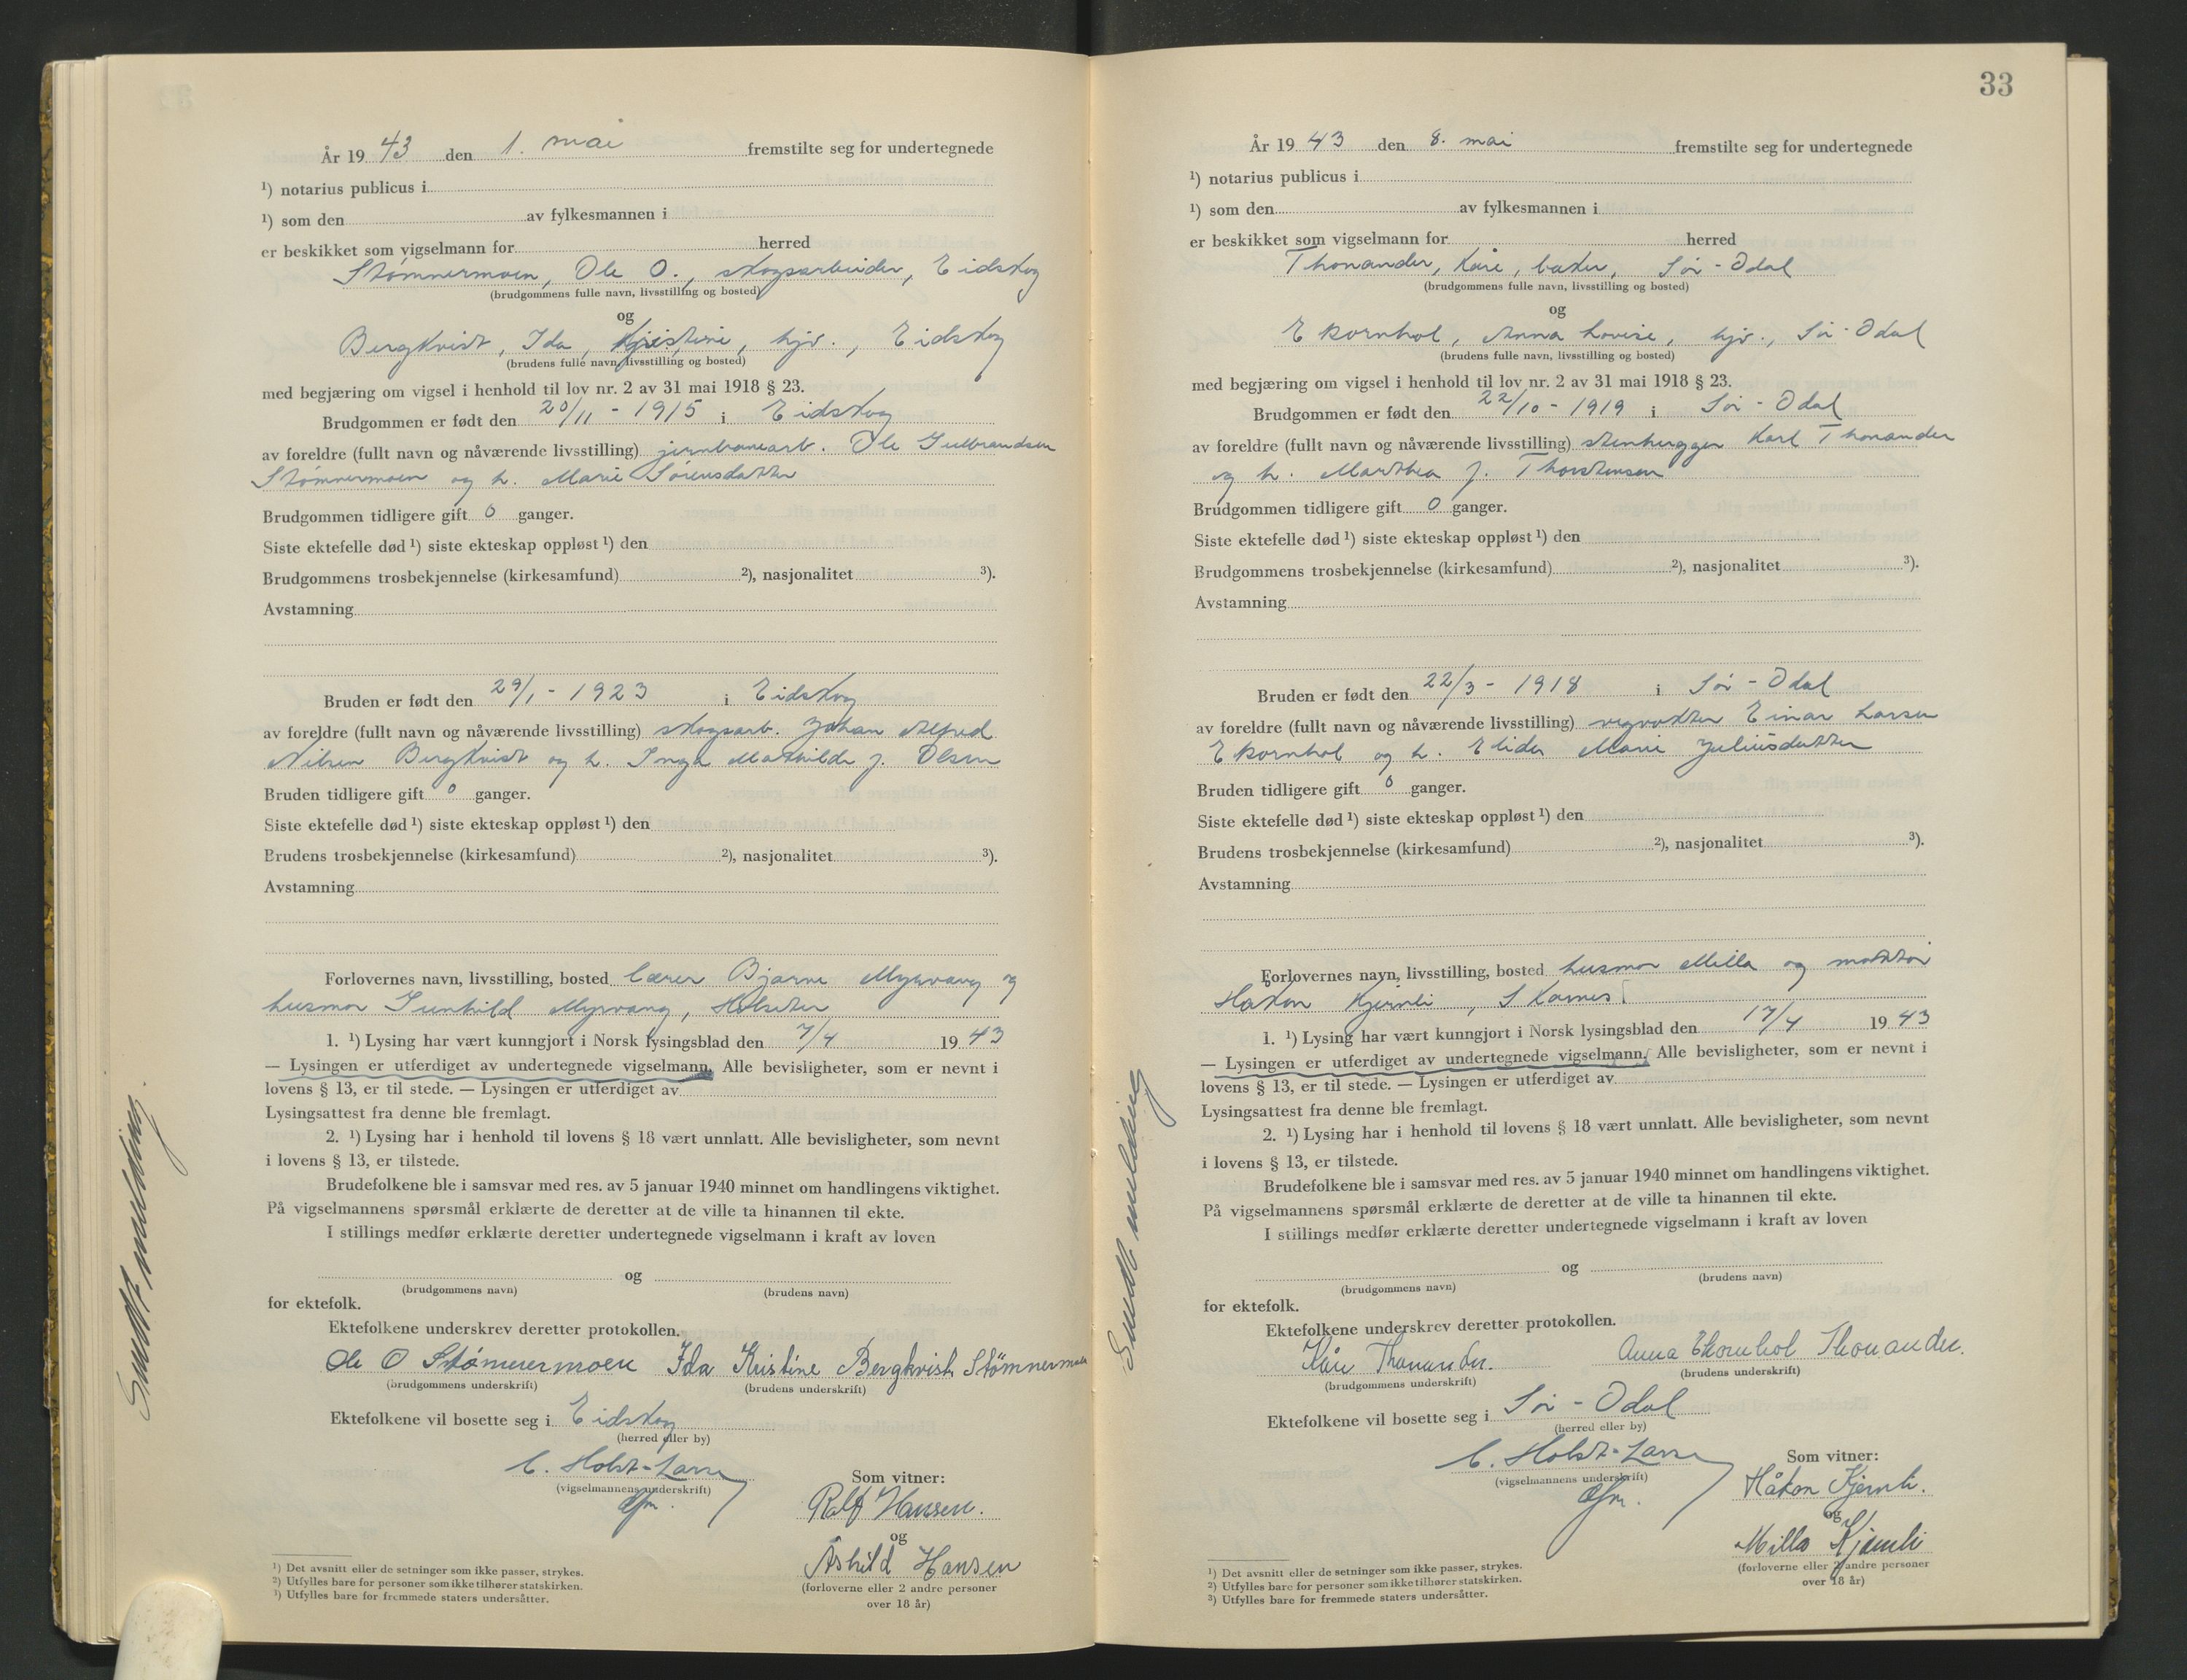 År 19 43 den 1. mai fremstilte seg for undertegnede
¹) notarius publicus i
¹) som den av fylkesmannen i
er beskikket som vigselmann for herred
Stømnermoen, Ole O., skogsarbeider, Eidskog
(brudgommens fulle navn, livsstilling og bosted)
og
Bergkvist, Ida, Kristine, hjv., Eidskog
(brudens fulle navn, livsstilling og bosted)
med begjæring om vigsel i henhold til lov nr. 2 av 31 mai 1918 § 23.
Brudgommen er født den 20/11 - 1915 i Eidskog
av foreldre (fullt navn og nåværende livsstilling) jernbanearb. Ole Gulbrandsen
Stømnermoen og h. Marie Sørensdatter
Brudgommen tidligere gift 0 ganger.
Siste ektefelle død ¹) siste ekteskap oppløst ¹) den
Brudgommens trosbekjennelse (kirkesamfund) ²), nasjonalitet ³).
Avstamning
Bruden er født den 29/1 - 1923 i Eidskog
av foreldre (fullt navn og nåværende livsstilling) skogsarb. Johan Alfred
Nilsen Bergkvist og h. Inga Mathilde f. Olsen
Bruden tidligere gift 0 ganger.
Siste ektefelle død ¹) siste ekteskap oppløst ¹) den
Brudens trosbekjennelse (kirkesamfund) ²), nasjonalitet ³).
Avstamning
Forlovernes navn, livsstilling, bosted lærer Bjarne Myrvang og
husmor Gunhild Myrvang, Holseter
1. ¹) Lysing har vært kunngjort i Norsk lysingsblad den 7/4 19 43
— Lysingen er utferdiget av undertegnede vigselmann. Alle bevisligheter, som er nevnt i
lovens § 13, er til stede. — Lysingen er utferdiget av
Lysingsattest fra denne ble fremlagt.
2. ¹) Lysing har i henhold til lovens § 18 vært unnlatt. Alle bevisligheter, som nevnt
i lovens § 13, er tilstede.
Brudefolkene ble i samsvar med res. av 5 januar 1940 minnet om handlingens viktighet.
På vigselmannens spørsmål erklærte de deretter at de ville ta hinannen til ekte.
I stillings medfør erklærte deretter undertegnede vigselmann i kraft av loven
og
(brudgommens navn) (brudens navn)
for ektefolk.
Ektefolkene underskrev deretter protokollen.
Ole O Stømnermoen Ida Kristine Bergkvist Stömnermoen
(brudgommens underskrift) (brudens underskrift)
Ektefolkene vil bosette seg i Eidskog
(herred eller by)
C. Holst-Larsen
(vigselmannens underskrift)
Som vitner:
Rolf Hansen.
og
Åshild Hansen
(forloverne eller 2 andre personer
over 18 år)
¹) Det avsnitt eller de setninger som ikke passer, strykes.
²) Utfylles bare for personer som ikke tilhører statskirken.
³) Utfylles bare for fremmede staters undersåtter.
Sendt melding
33
År 19 43 den 8. mai fremstilte seg for undertegnede
¹) notarius publicus i
¹) som den av fylkesmannen i
er beskikket som vigselmann for herred
Thonander, Kåre, baker, Sør-Odal
(brudgommens fulle navn, livsstilling og bosted)
og
Ekornhol, Anna Lovise, hjv., Sør-Odal
(brudens fulle navn, livsstilling og bosted)
med begjæring om vigsel i henhold til lov nr. 2 av 31 mai 1918 § 23.
Brudgommen er født den 22/10 - 1919 i Sør-Odal
av foreldre (fullt navn og nåværende livsstilling) stenhugger Karl Thonander
og h. Marthea f. Thorstensen
Brudgommen tidligere gift 0 ganger.
Siste ektefelle død ¹) siste ekteskap oppløst ¹) den
Brudgommens trosbekjennelse (kirkesamfund) ²), nasjonalitet ³).
Avstamning
Bruden er født den 22/3 - 1918 i Sør-Odal
av foreldre (fullt navn og nåværende livsstilling) vegvokter Einar Larsen
Ekornhol og h. Elida Marie Juliusdatter
Bruden tidligere gift 0 ganger.
Siste ektefelle død ¹) siste ekteskap oppløst ¹) den
Brudens trosbekjennelse (kirkesamfund) ²), nasjonalitet ³).
Avstamning
Forlovernes navn, livsstilling, bosted husmor Milla og
Håkon Kjernli, Skarnes
1. ¹) Lysing har vært kunngjort i Norsk lysingsblad den 17/4 19 43
— Lysingen er utferdiget av undertegnede vigselmann. Alle bevisligheter, som er nevnt i
lovens § 13, er til stede. — Lysingen er utferdiget av
Lysingsattest fra denne ble fremlagt.
2. ¹) Lysing har i henhold til lovens § 18 vært unnlatt. Alle bevisligheter, som nevnt
i lovens § 13, er tilstede.
Brudefolkene ble i samsvar med res. av 5 januar 1940 minnet om handlingens viktighet.
På vigselmannens spørsmål erklærte de deretter at de ville ta hinannen til ekte.
I stillings medfør erklærte deretter undertegnede vigselmann i kraft av loven
og
(brudgommens navn) (brudens navn)
for ektefolk.
Ektefolkene underskrev deretter protokollen.
Kåre Thonander. Anna Ekornhol Thonander.
(brudgommens underskrift) (brudens underskrift)
Ektefolkene vil bosette seg i Sør-Odal
(herred eller by)
C. Holst-Larsen
(vigselmannens underskrift)
Som vitner:
Håkon Kjernli.
og
Milla Kjernli
(forloverne eller 2 andre personer
over 18 år)
¹) Det avsnitt eller de setninger som ikke passer, strykes.
²) Utfylles bare for personer som ikke tilhører statskirken.
³) Utfylles bare for fremmede staters undersåtter.
Sendt melding